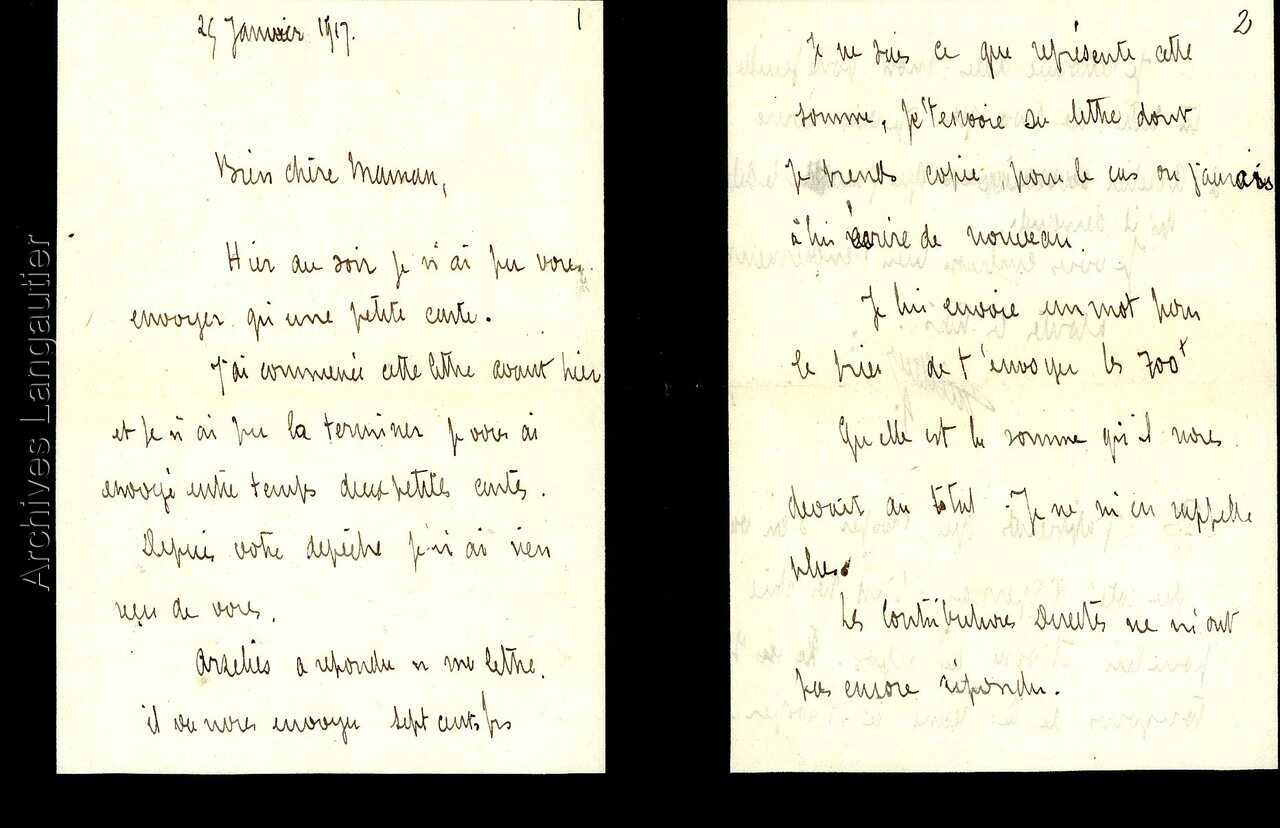 25 Janvier 1917.
1
Bien chère Maman,
Hier au soir je n'ai pu vous
envoyer qu'une petite carte.
J'ai commencé cette lettre avant hier
et je n'ai pu la terminer je vous ai
envoyé entre temps deux petites cartes.
Depuis votre depêche je n'ai rien
reçu de vous.
a repondu a ma lettre.
il va nous envoyer sept cents frs
2
Je ne sais ce que représente cette
somme, je t'envoie sa lettre dont
je prends copie, pour le cas ou j'aurais
à lui écrire de nouveau.
Je lui envoie un mot pour
le prier de t'envoyer les 700f
Quelle est la somme qu'il nous
devait au total. Je ne m'en rappelle
plus.
Les Contributions Directes ne m'ont
pas encore répondu.
Archives Langautier